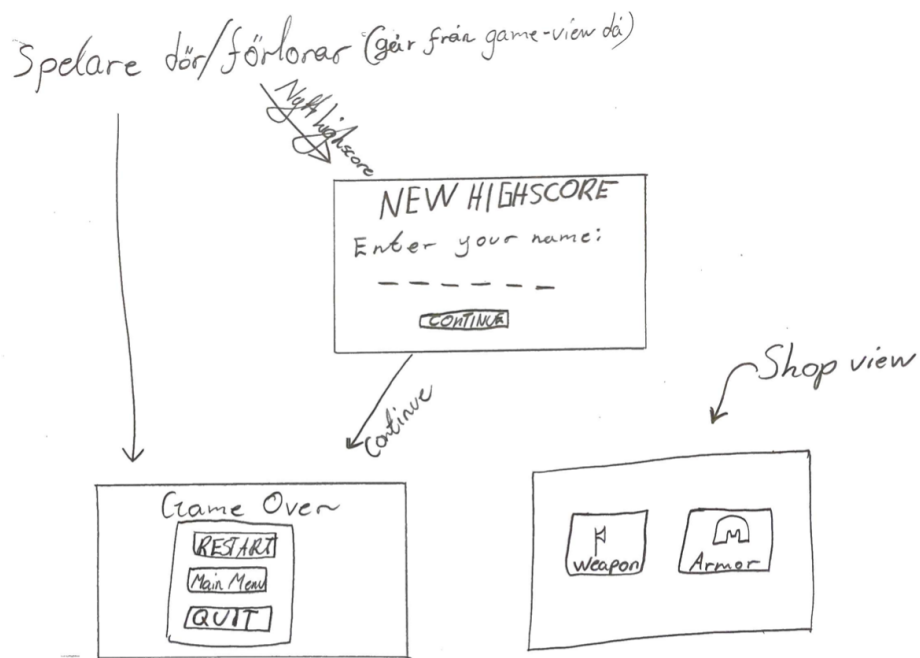 Spelare dör/förlorar (går från game-view då)
Nytt highscore
NEW HIGHSCORE
Enter your name:
CONTINUE
Continue
Shop view
Game Over
RESTART
Main Menu
QUIT
Weapon
Armor